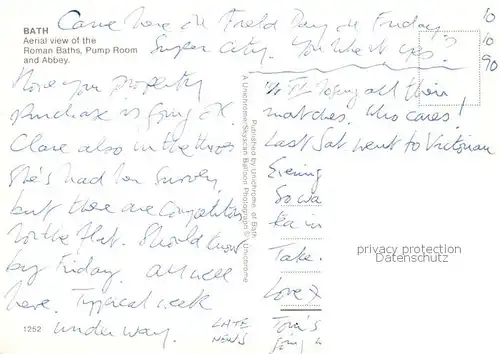 BATH
Aerial view of the
Roman Baths, Pump Room
and Abbey.
Came here on Field Day on Friday
Super city. You like it yes?
10
10
90
Hope your property
purchase is going OK.
Clare also in the throes
She's had her Survey,
but there are competitors
for the flat. Should know
by Friday. All well
here. Typical week
under way.
1252
LATE
NEWS
Published by Unichrome of Bath
A Unichrome/Skyscan Balloon Photograph © Unichrome
losing all their
matches. Who cares!
Last Sat went to Victorian
Evening
So wa
tea in
Take.
Love x
Tom's
going
privacy protection
Datenschutz